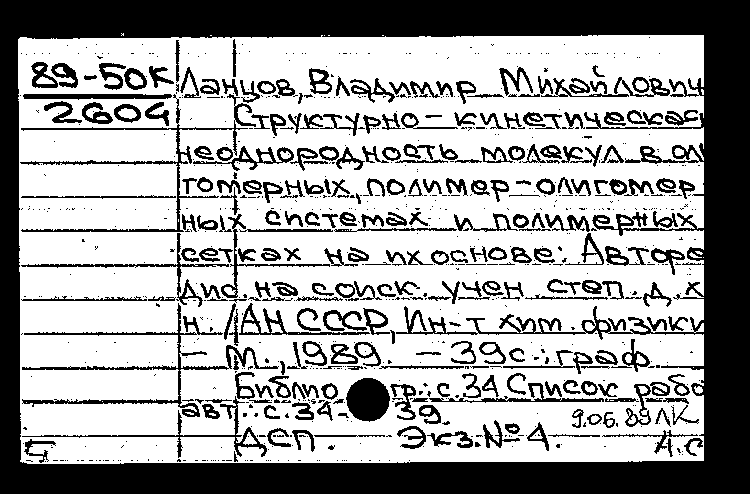 89-50К Ланцов, Владимир Михайлович
2604 Структурно-кинетическая
неоднородность молекул в оли
гомерных, полимер-олигомер
ных системах и полимерных
сетках на их основе: Авторе
дис. на соиск. учен. степ. д. х
н. /АН СССР, Ин-т хим. физики
- М., 1989. - 39с.: граф
Библио гр.: с.34. Список рабо
авт.: с.34- 39.
9.06.89 ЛК
ДСП. Экз.№4.